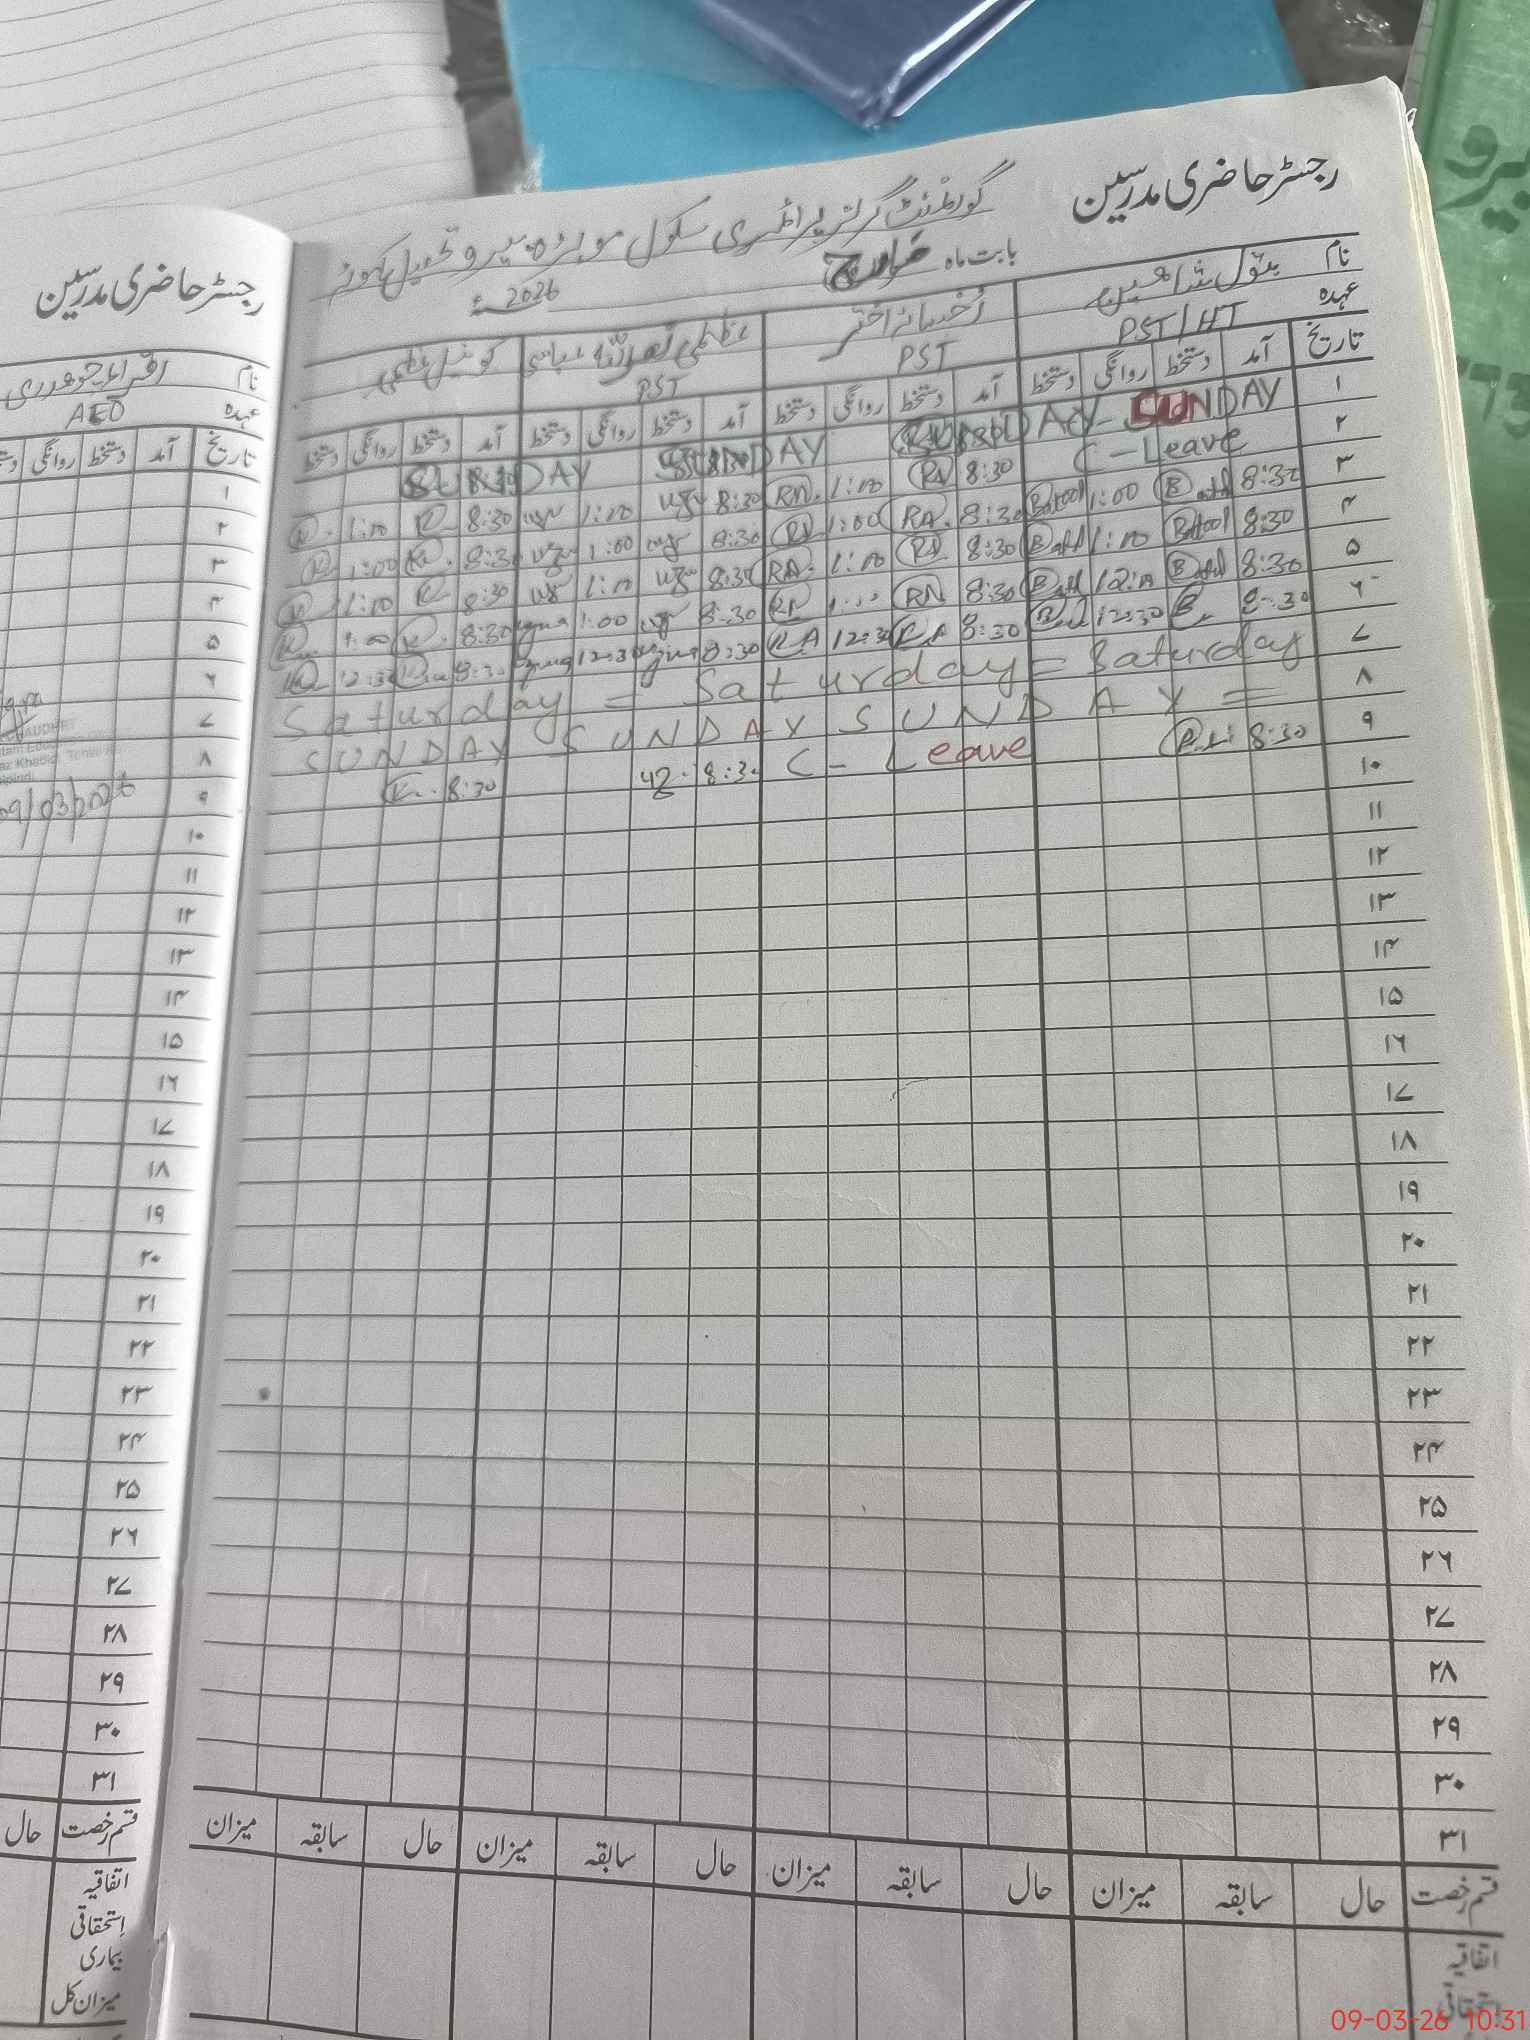 رجسٹر حاضری مدرسین
گورنمنٹ گرلز پرائمری سکول موہڑہ پیرو تحصیل کہوٹہ
بابت ماہ مارچ 2026ء
نام بتول شاہین
عہدہ PST/HT
اختر
PST
عظمی عباسی
PST
کونسل
تاریخ آمد دستخط روانگی دستخط آمد دستخط روانگی دستخط آمد دستخط روانگی دستخط آمد دستخط روانگی دستخط
۱ SUNDAY SUNDAY SUNDAY SUNDAY
۲ C-Leave 8:30 RA 1:00 RA 8:30 uzr 1:00 uzr 8:30 K 1:00 K
۳ 8:30 Batool 1:00 Batool 8:30 RA 1:00 RA 8:30 1:00 8:30 K 1:00 K
۴ 8:30 Batool 1:00 Batool 8:30 RA 1:00 RA 8:30 uzr 1:00 uzr 8:30 K 1:00 K
۵ 8:30 Batool 12:00 Batool 8:30 RA 1:00 RA 8:30 1:00 8:30 K 1:00 K
۶ 8:30 B 12:30 8:30 RA 12:30 RA 8:30 12:30 8:30 12:30
۷ Saturday = Saturday = Saturday
۸ SUNDAY SUNDAY SUNDAY =
۹ 8:30 C-Leave 8:30 uz 8:30 K
۱۰
۱۱
۱۲
۱۳
۱۴
۱۵
۱۶
۱۷
۱۸
۱۹
۲۰
۲۱
۲۲
۲۳
۲۴
۲۵
۲۶
۲۷
۲۸
۲۹
۳۰
۳۱
قسم رخصت حال سابقہ میزان حال سابقہ میزان حال سابقہ میزان حال سابقہ میزان
اتفاقیہ
استحقاقی
رجسٹر حاضری مدرسین
نام اقراء چوہدری
عہدہ AEO
تاریخ آمد دستخط روانگی
۱
۲
۳
۴
۵
۶
۷
۸
۹ 09/03/2026
۱۰
۱۱
۱۲
۱۳
۱۴
۱۵
۱۶
۱۷
۱۸
۱۹
۲۰
۲۱
۲۲
۲۳
۲۴
۲۵
۲۶
۲۷
۲۸
۲۹
۳۰
۳۱
قسم رخصت حال
اتفاقیہ
استحقاقی
بیماری
میزان کل
09-03-26 10:31